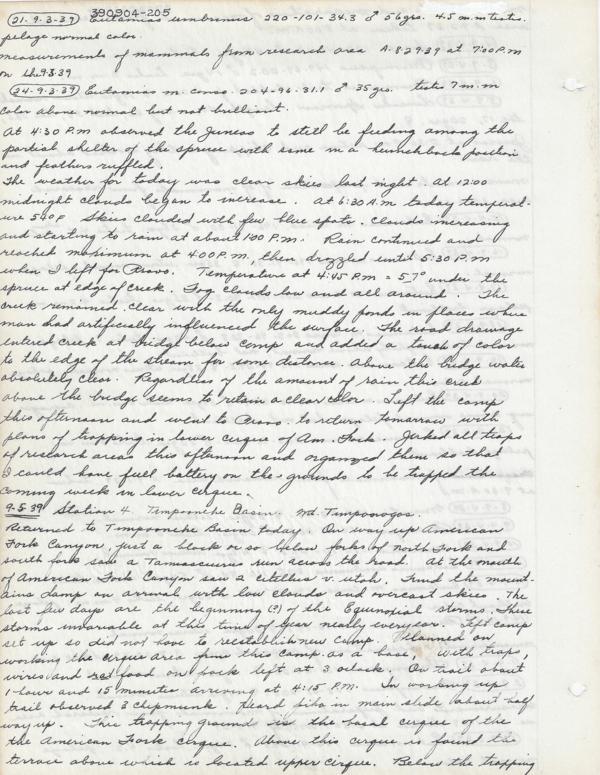 390904-205
(21-9-3-39) Eutamias umbrinus 220-101-34.3 ♂ 56grs. 4.5 m.m testis.
pelage normal color.
measurements of mammals from research area A-8-29-39 at 7:00 P.M
on the 9-3-39
(24-9-3-39) Eutamias m. conso. 204-96-31.1 ♂ 35 grs. testis 7 m.m
Color above normal but not brilliant.
At 4:30 P.M observed the Juncos to still be feeding among the
partial shelter of the spruce with some in a hunchback position
and feathers ruffled.
The weather for today was clear skies last night. At 12:00
midnight clouds began to increase. At 6:30 A.M today temperat-
ure 540F Skies clouded with few blue spots. Clouds increasing
and starting to rain at about 1:00 P.M. Rain continued and
reached maximum at 4:00 P.M, then drozzled until 5:30 P.M
when I left for Provo. Temperature at 4:45 P.M = 57° under the
spruce at edge of creek. Fog clouds low and all around. The
creek remained clear with the only muddy ponds in places where
man had artificially influenced the surface. The road drainage
entered creek at bridge below camp and added a touch of color
to the edge of the stream for some distance. Above the bridge water
absolutely clear. Regardless of the amount of rain this creek
above the bridge seems to retain a clear color. Left the camp
this afternoon and went to Provo to return tomorrow with
plans of trapping in lower cirque of Am. Fork. Jerked all traps
of research areas this afternoon and organized them so that
I could have full battery on the grounds to be trapped the
coming week in lower cirque.
9-5-39 Station 4. Timpooneke Basin. Mt. Timponogos.
Returned to Timpooneke Basin today. On way up American
Fork Canyon, just a block or so below forks of North Fork and
south fork saw a Tamasciurus run across the road. At the mouth
of American Fork Canyon saw a citellus v. utah. Find the mount-
ains damp on arrival with low clouds and overcast skies. The
last few days are the beginning (?) of the Equinoxial storms. These
storms invariable at this time of year nearly every year. Left camp
set up so did not have to reestablish new camp. Planned on
working the cirque area from this camp as a base, with traps,
wires and food on pack left at 3 oclock. On trail about
1 hour and 15 minutes arriving at 4:15 P.M. In working up
trail observed 3 chipmunk. Heard pika in main slide about half
way up. This trapping grounds is the basal cirque of the
the American Fork cirque. Above this cirque is found the
terrace above which is located upper cirque. Below the trapping